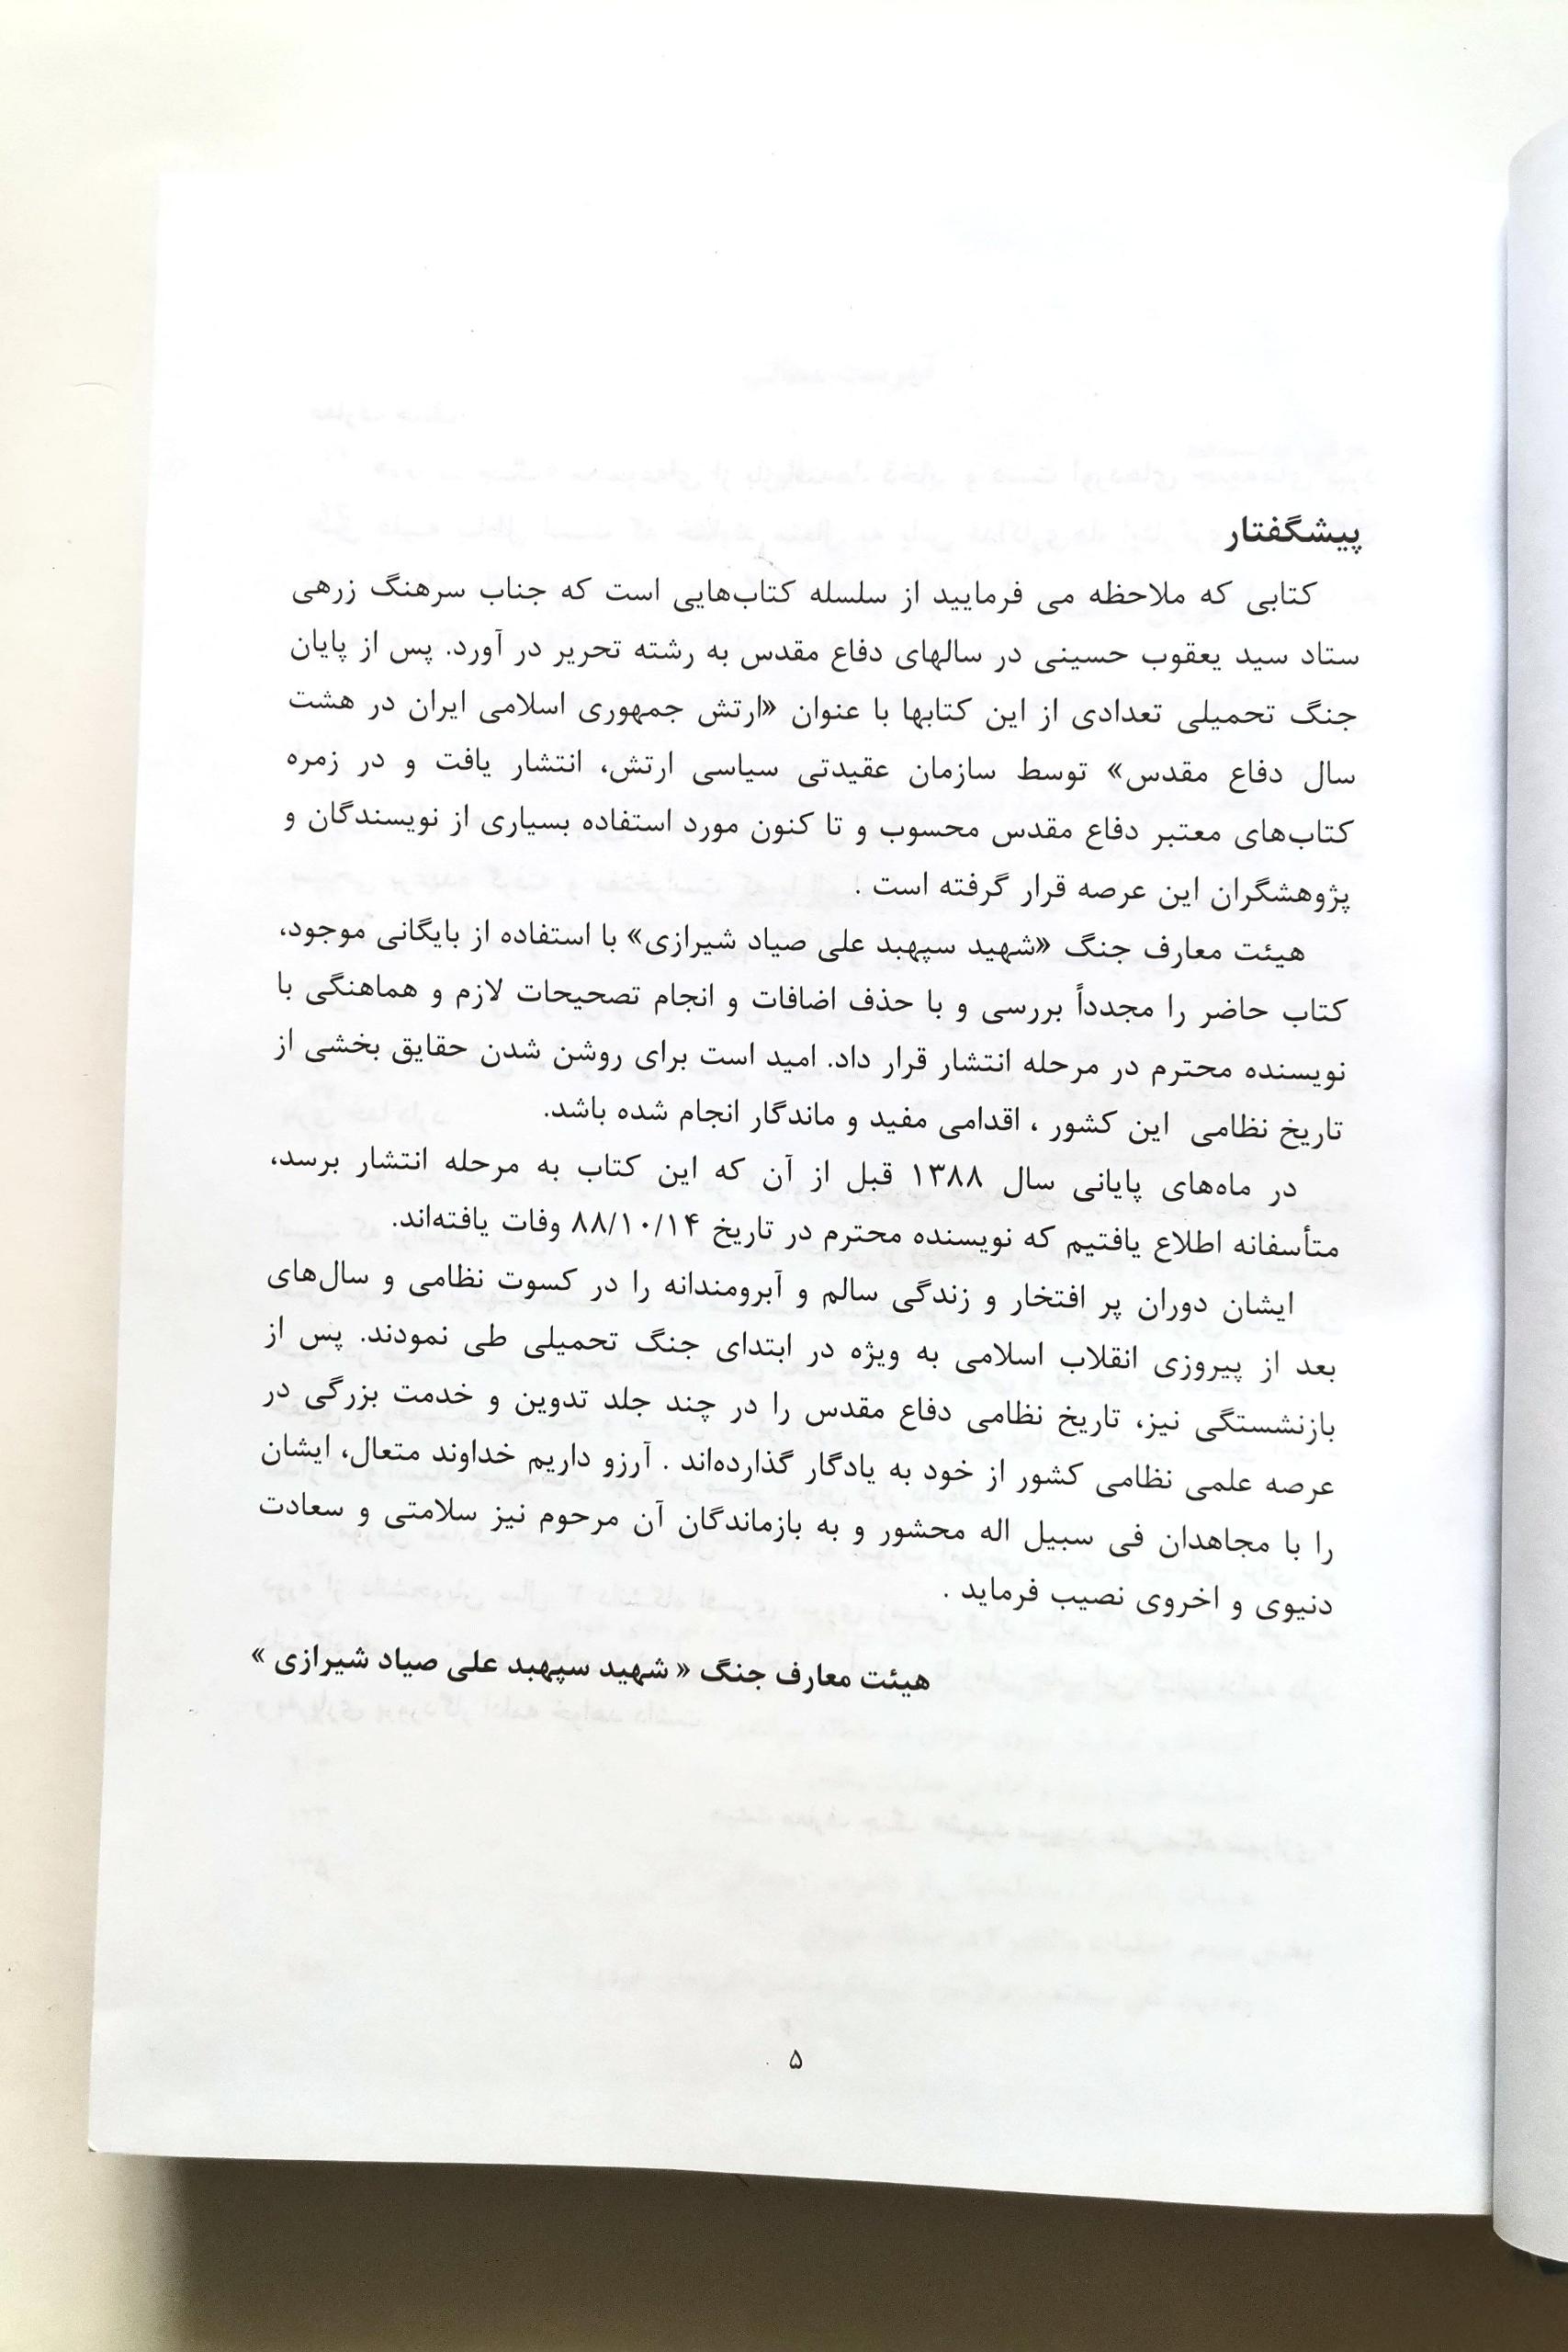 پیشگفتار
کتابی که ملاحظه می فرمایید از سلسله کتاب‌هایی است که جناب سرهنگ زرهی
ستاد سید یعقوب حسینی در سالهای دفاع مقدس به رشته تحریر در آورد. پس از پایان
جنگ تحمیلی تعدادی از این کتابها با عنوان «ارتش جمهوری اسلامی ایران در هشت
سال دفاع مقدس» توسط سازمان عقیدتی سیاسی ارتش، انتشار یافت و در زمره
کتاب‌های معتبر دفاع مقدس محسوب و تا کنون مورد استفاده بسیاری از نویسندگان و
پژوهشگران این عرصه قرار گرفته است .
هیئت معارف جنگ «شهید سپهبد علی صیاد شیرازی» با استفاده از بایگانی موجود،
کتاب حاضر را مجدداً بررسی و با حذف اضافات و انجام تصحیحات لازم و هماهنگی با
نویسنده محترم در مرحله انتشار قرار داد. امید است برای روشن شدن حقایق بخشی از
تاریخ نظامی این کشور ، اقدامی مفید و ماندگار انجام شده باشد.
در ماه‌های پایانی سال ۱۳۸۸ قبل از آن که این کتاب به مرحله انتشار برسد،
متأسفانه اطلاع یافتیم که نویسنده محترم در تاریخ ۸۸/۱۰/۱۴ وفات یافته‌اند.
ایشان دوران پر افتخار و زندگی سالم و آبرومندانه را در کسوت نظامی و سال‌های
بعد از پیروزی انقلاب اسلامی به ویژه در ابتدای جنگ تحمیلی طی نمودند. پس از
بازنشستگی نیز، تاریخ نظامی دفاع مقدس را در چند جلد تدوین و خدمت بزرگی در
عرصه علمی نظامی کشور از خود به یادگار گذارده‌اند . آرزو داریم خداوند متعال، ایشان
را با مجاهدان فی سبیل اله محشور و به بازماندگان آن مرحوم نیز سلامتی و سعادت
دنیوی و اخروی نصیب فرماید .
هیئت معارف جنگ « شهید سپهبد علی صیاد شیرازی »
۵